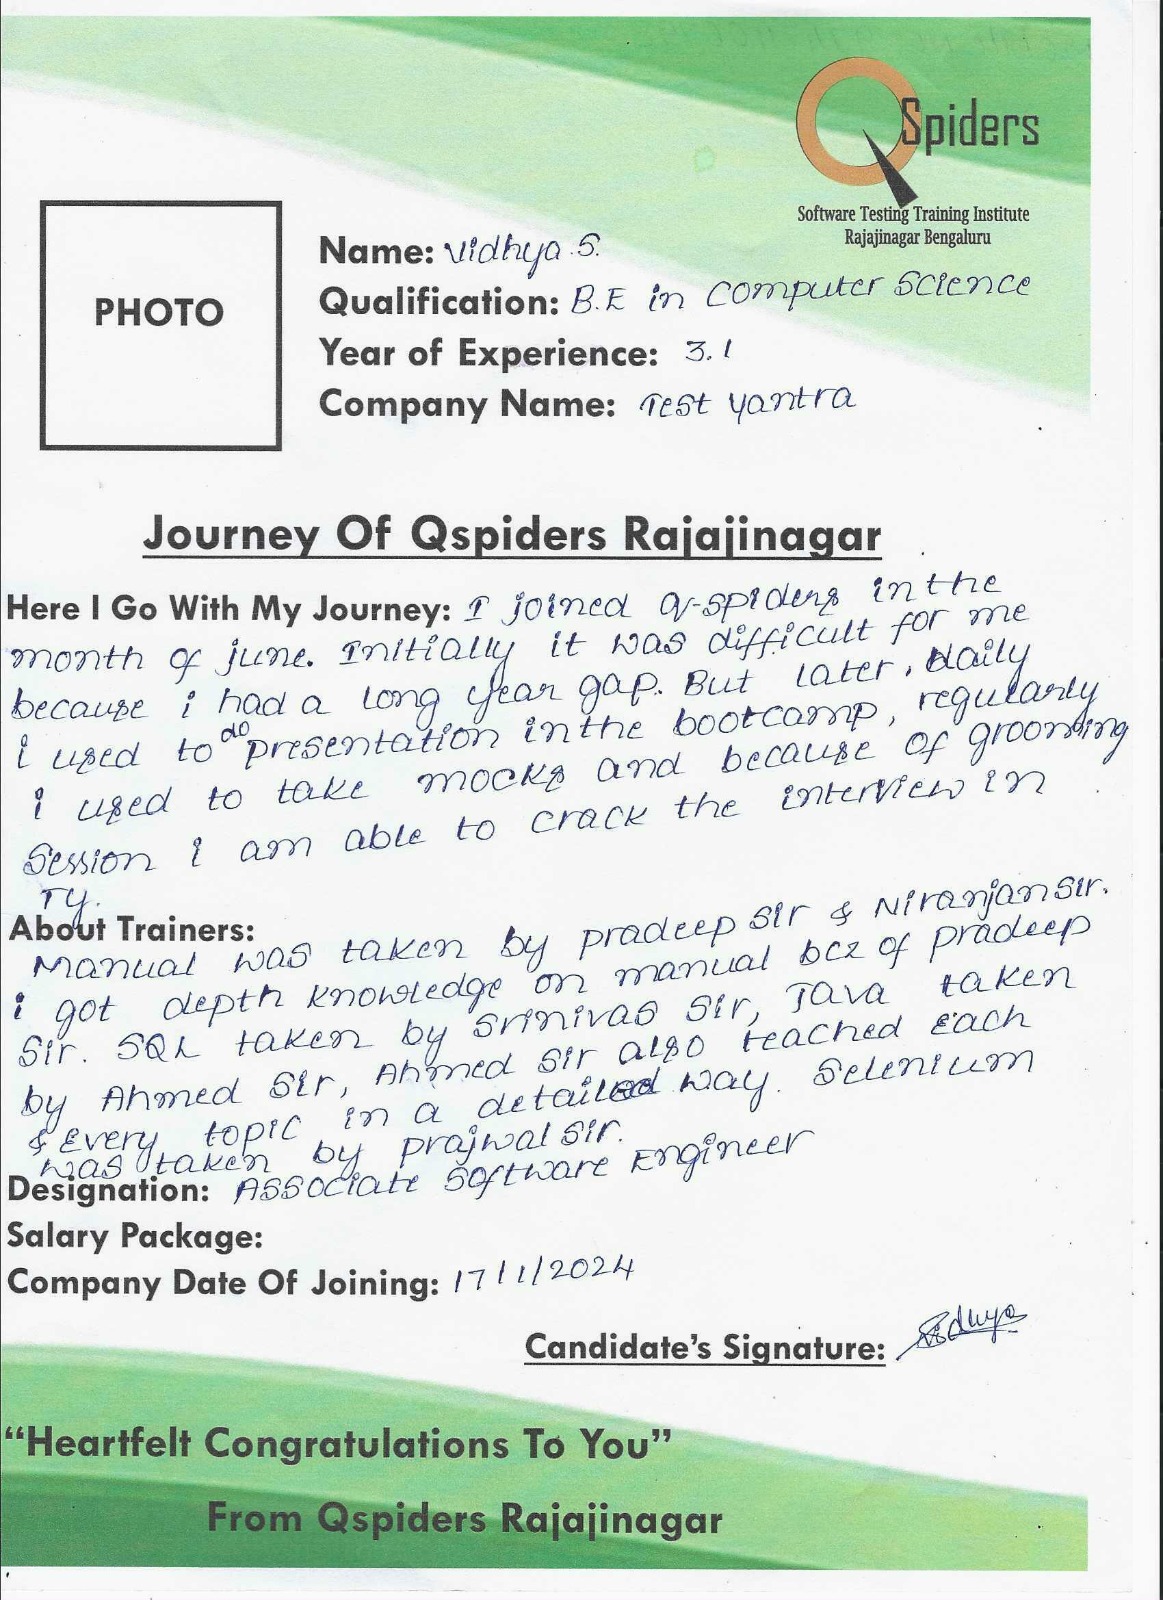 QSpiders
Software Testing Training Institute
Rajajinagar Bengaluru
PHOTO
Name: Vidhya.S.
Qualification: B.E in Computer Science
Year of Experience: 3.1
Company Name: Test Yantra
Journey Of Qspiders Rajajinagar
Here I Go With My Journey: I joined Q-spiders in the
month of june. Initially it was difficult for me
because i had a long year gap. But later, daily
i used to do presentation in the bootcamp, regularly
i used to take mocks and because of grooming
Session i am able to crack the interview in
TY.
About Trainers:
Manual was taken by pradeep sir & Niranjan sir.
i got depth knowledge on manual bcz of pradeep
Sir. SQL taken by Srinivas Sir, Java taken
by Ahmed Sir, Ahmed Sir also teached Each
& Every topic in a detailed way. Selenium
was taken by prajwal sir.
Designation: Associate Software Engineer
Salary Package:
Company Date Of Joining: 17/1/2024
Candidate's Signature: Vidhya
“Heartfelt Congratulations To You”
From Qspiders Rajajinagar